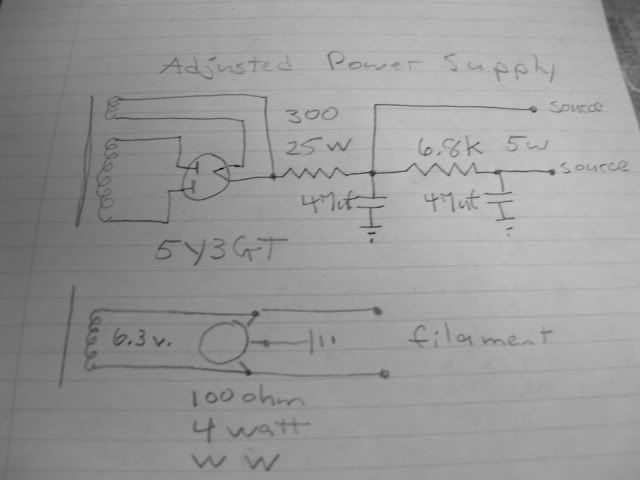 Adjusted Power Supply
source
300
25W
6.8k 5w
source
47uf
47uf
5Y3GT
6.3v.
filament
100 ohm
4 watt
W W